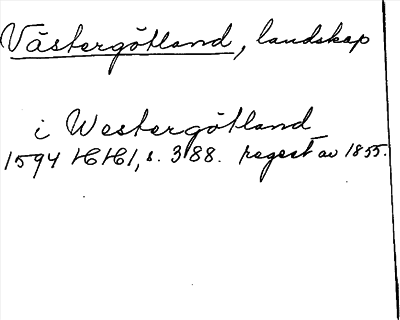 Västergötland, landskap
i Westergötland
1594 HHI, s. 388. regest av 1855.